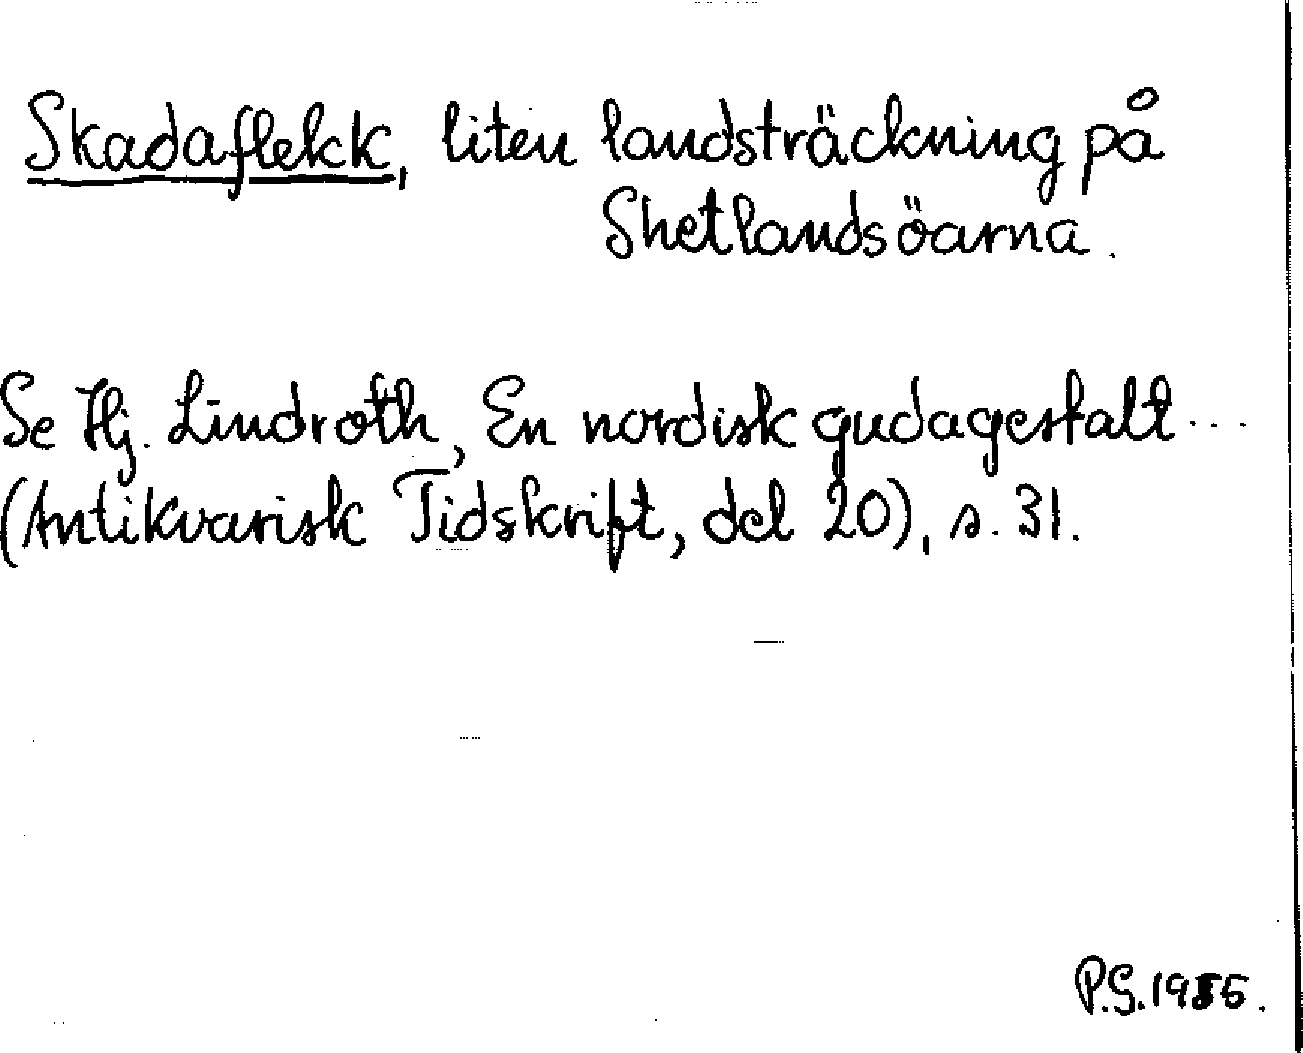 Skadaflekk, liten landsträckning på
Shetlandsöarna.
Se Hj. Lindroth, En nordisk gudagestalt...
(Antikvarisk Tidskrift, del 20), s. 31.
P.G.